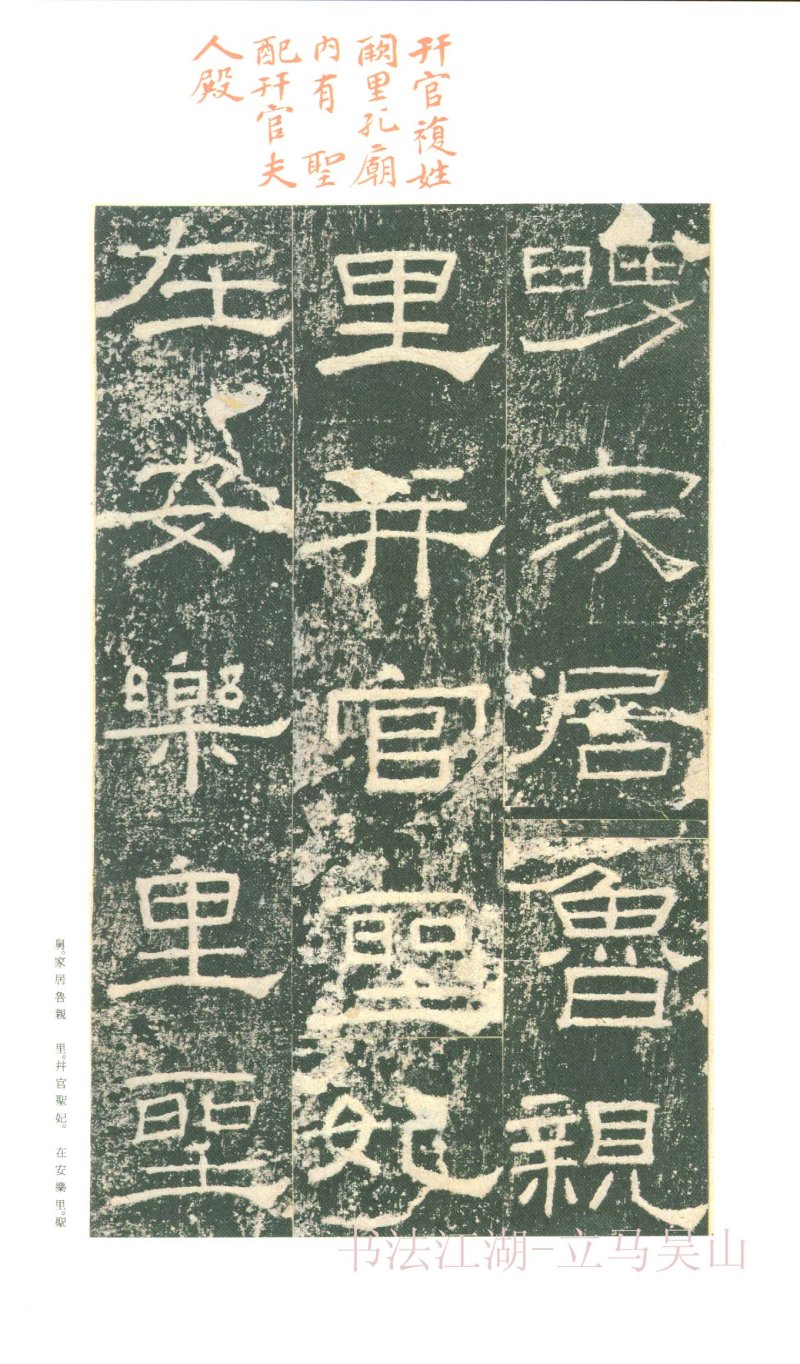 幵官複姓
闕里孔廟
内有 聖
配幵官夫
人殿
舅家居魯親
里并官聖妃
在安樂里聖
舅。家居魯親 里。并官聖妃。 在安樂里。聖
书法江湖-立马吴山